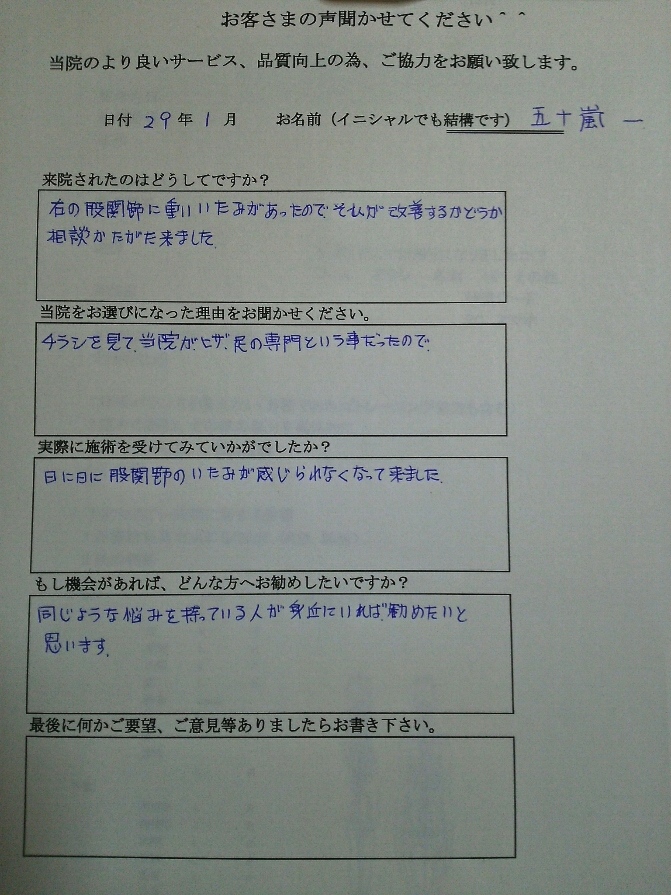 お客さまの声聞かせてください＾＾
当院のより良いサービス、品質向上の為、ご協力をお願い致します。
日付 29年 1月 お名前（イニシャルでも結構です） 五十嵐 一
来院されたのはどうしてですか？
右の股関節に重いいたみがあったので それが改善するかどうか
相談かたがた来ました
当院をお選びになった理由をお聞かせください。
チラシを見て、当院が、ヒザ、足の専門という事だったので
実際に施術を受けてみていかがでしたか？
日に日に股関節のいたみが感じられなくなって来ました
もし機会があれば、どんな方へお勧めしたいですか？
同じような悩みを持っている人が身近にいれば勧めたいと
思います。
最後に何かご要望、ご意見等ありましたらお書き下さい。